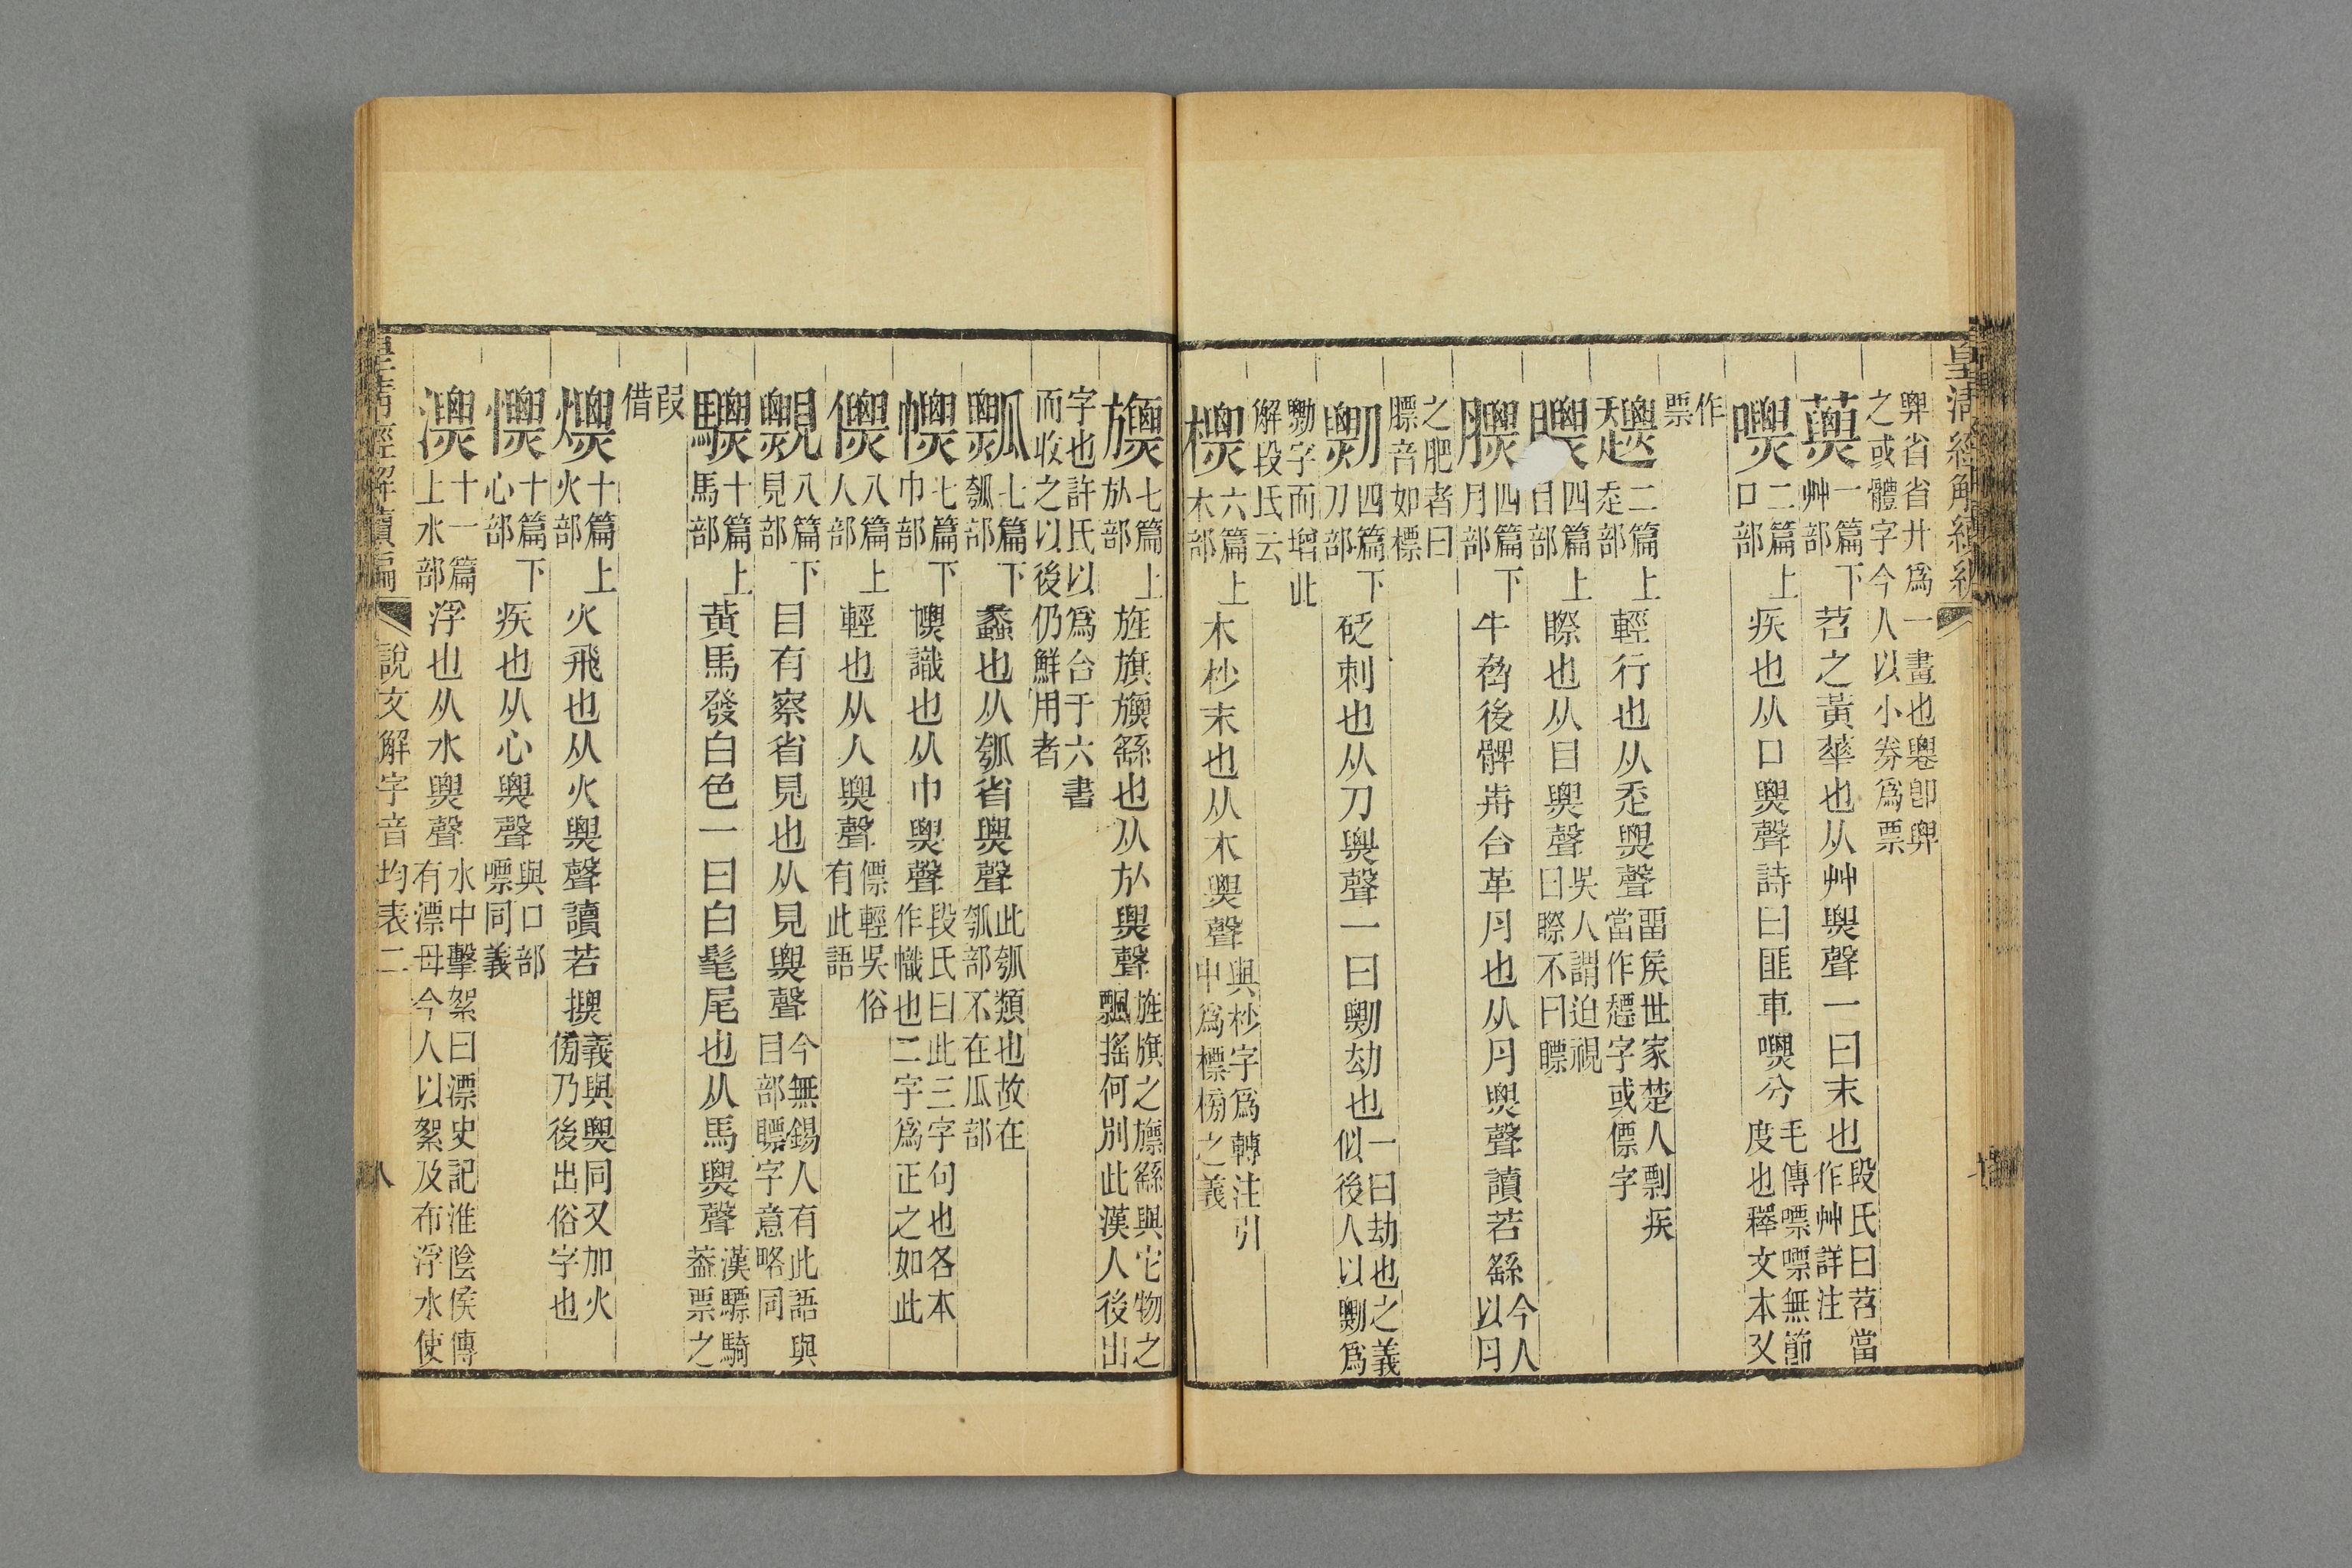 皇清經解續編
省省廾為一畫也䙴卽
之或體字今人以小券為票
一篇下艸部 苕之黃華也从艸㶾聲一曰末也 段氏曰苕當作艸詳注
嘌 二篇上口部 疾也从口㶾聲詩曰匪車嘌兮 毛傳嘌嘌無節度也釋文本又
作票
二篇上夭部 輕行也从走㶾聲 畱矦世家楚人剽疾當作字或僄字
四篇上目部 瞭也从目㶾聲 吳人謂迫視曰瞭不曰瞟
膘 四篇下月部 牛脅後髀前合革肉也从肉㶾聲讀若繇 今人以肉
之肥者曰膘音如標
剽 四篇下刀部 砭刺也从刀㶾聲一曰剽劫也 一曰劫也之義似後人以剽為
勡字而增此解段氏云
標 六篇上木部 木杪末也从木㶾聲 與杪字為轉注引申為標榜之義
旚 七篇上㫃部 旌旗旚繇也从㫃㶾聲 旌旗之旚繇與它物之飄搖何別此漢人後出
字也許氏以為合于六書而收之以後仍鮮用者
瓢 七篇下瓠部 蠡也从瓠省㶾聲 此瓠類也故在瓠部不在瓜部
幖 七篇下巾部 幖識也从巾㶾聲 段氏曰此三字句也各本作幟也二字為正之如此
僄 八篇上人部 輕也从人㶾聲 僄輕吳俗有此語
八篇下見部 目有察省見也从見㶾聲 今無錫人有此語與目部瞟字意略同
驃 十篇上馬部 黃馬發白色一曰白髦尾也从馬㶾聲 漢驃騎葢票之
叚借
熛 十篇上火部 火飛也从火㶾聲讀若摽 義與㶾同又加火傍乃後出俗字也
慓 十篇下心部 疾也从心㶾聲 與口部嘌同義
漂 十一篇上水部 浮也从水㶾聲 水中擊絮曰漂史記淮陰侯傳有漂母今人以絮及布浮水使
皇清經解續編 說文解字音均表二 八